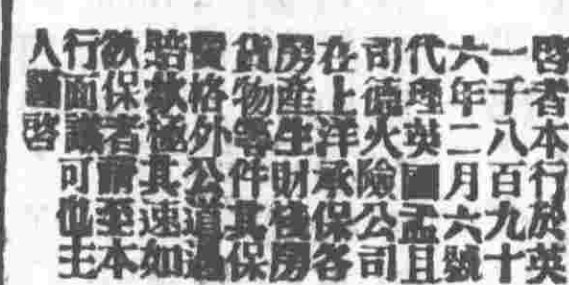 啓者本行於英
一千八百九十
六年二月六號
代理英國孟且
司德火險公司
在上洋承保各
房產生財棧房
貨物等件其保
費格外公道遇
賠款極其速如
欲保者請至本
行面議可也主
人謹啓